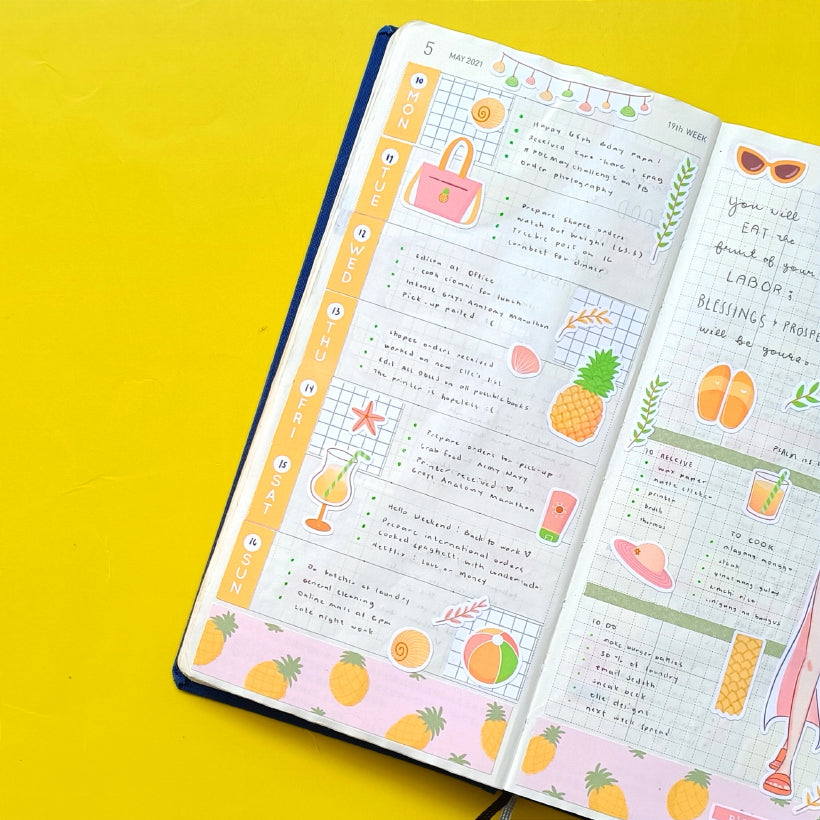 5 MAY 2021
19th WEEK
10 MON
Happy 65th Bday Papa!
Received
#POCMay challenge on FB
Order photography
11 TUE
Prepare Shopee orders
Watch out weight (63.5)
Freebie post on IG
for dinner
12 WED
Edison at Office
I cook for lunch
Intense Greys Anatomy Marathon
Pick-up failed :(
13 THU
Shopee orders received
Worked on new Elle's list
Edit All on all possible books
The printer is hopeless :(
14 FRI
Prepare orders for pick-up
Grab food : Army Navy
Printer received
Greys Anatomy Marathon
15 SAT
Hello Weekend! Back to work
Prepare international orders
Cooked spaghetti with
Netflix : Love or Money
16 SUN
Do batches of laundry
General cleaning
Online mass at 6pm
Late night work
You will
EAT the
fruit of your
LABOR;
BLESSINGS +
will be yours.
PSALM
TO RECEIVE
wax paper
matte sticker
printer
brush
thermos
TO COOK
ginisang gulay
kimchi rice
sinigang na bangus
TO DO
make burger patties
50% of laundry
email Judith
sneak peek
elle designs
next week spread